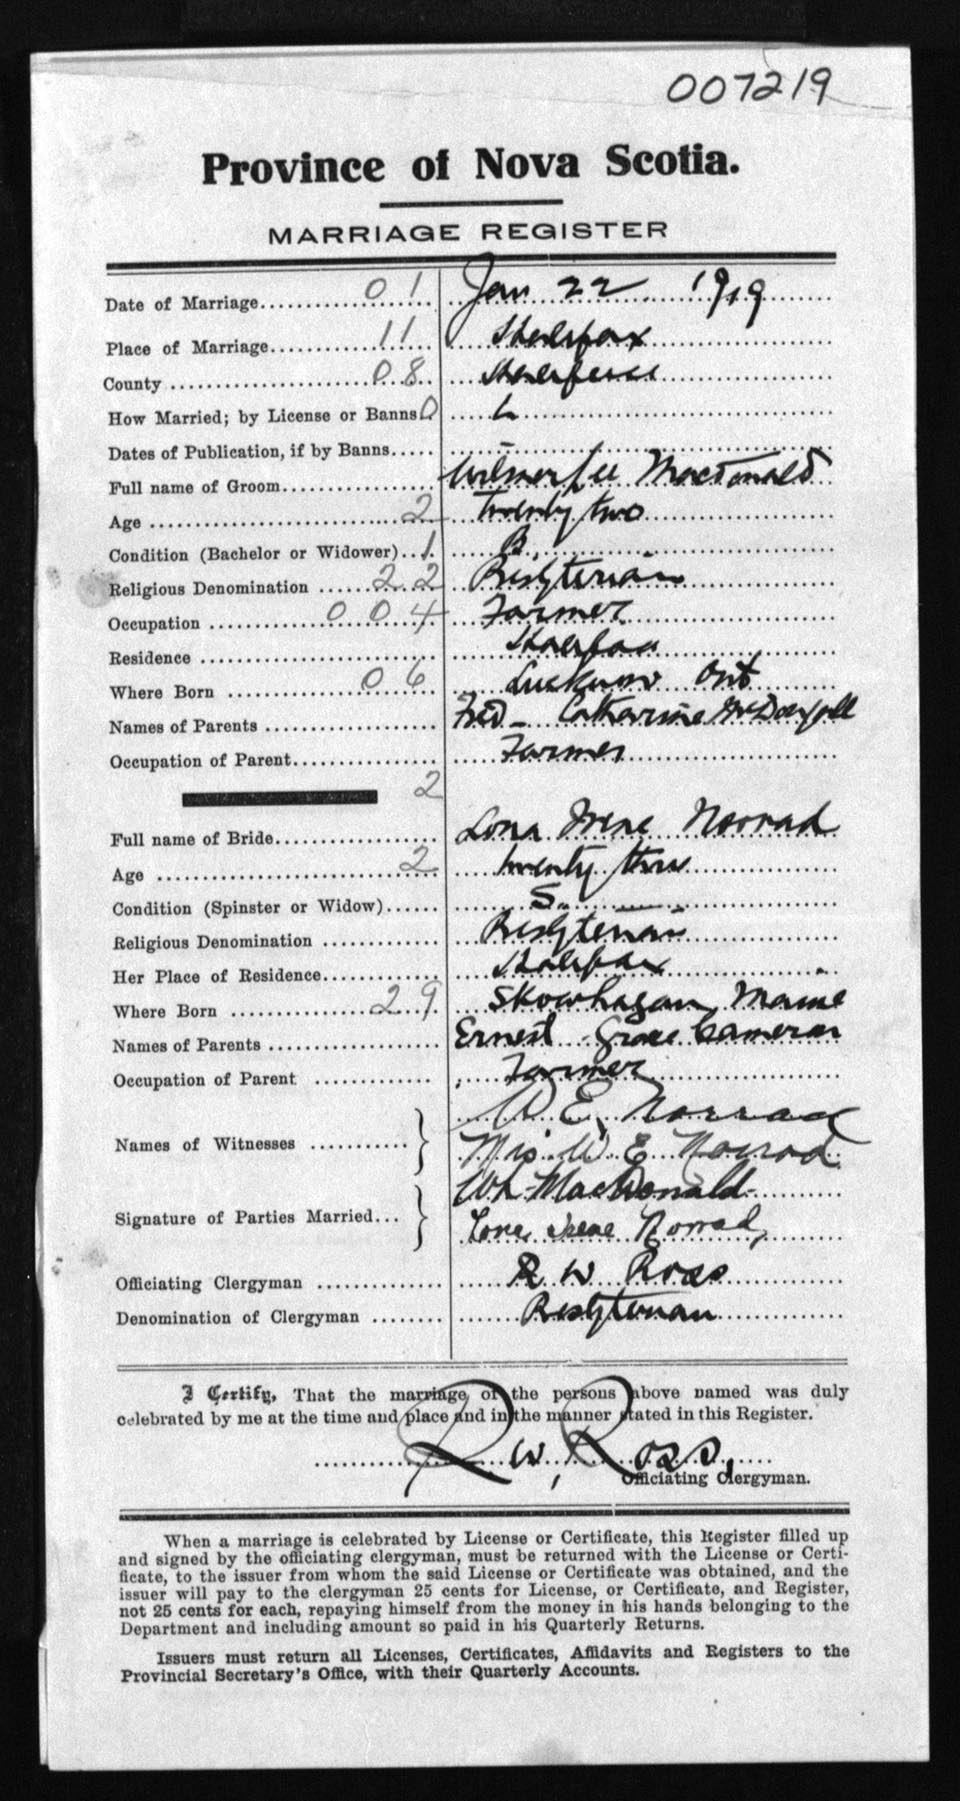 007219
Province of Nova Scotia.
MARRIAGE REGISTER
Date of Marriage 01 Jan 22 1919
Place of Marriage 11 Halifax
County 08 Halifax
How Married; by License or Banns 0 L
Dates of Publication, if by Banns —
Full name of Groom Wilmer Lee MacDonald
Age 2 twenty two
Condition (Bachelor or Widower) 1 B.
Religious Denomination 22 Presbyterian
Occupation 004 Farmer
Residence Halifax
Where Born 06 Lucknow Ont
Names of Parents Fred - Catharine McDougall
Occupation of Parent Farmer
2
Full name of Bride Lona Irene Norrad
Age 2 twenty three
Condition (Spinster or Widow) S.
Religious Denomination Presbyterian
Her Place of Residence Halifax
Where Born 29 Skowhagan, Maine
Names of Parents Ernest - Grace Cameron
Occupation of Parent Farmer
Names of Witnesses W. E. Norrad
Mrs. W. E. Norrad
Signature of Parties Married MacDonald
Irene Norrad,
Officiating Clergyman R W Ross
Denomination of Clergyman Presbyterian
I Certify, That the marriage of the persons above named was duly
celebrated by me at the time and place and in the manner stated in this Register.
R. W. Ross,
Officiating Clergyman.
When a marriage is celebrated by License or Certificate, this Register filled up
and signed by the officiating clergyman, must be returned with the License or Certi-
ficate, to the issuer from whom the said License or Certificate was obtained, and the
issuer will pay to the clergyman 25 cents for License, or Certificate, and Register,
not 25 cents for each, repaying himself from the money in his hands belonging to the
Department and including amount so paid in his Quarterly Returns.
Issuers must return all Licenses, Certificates, Affidavits and Registers to the
Provincial Secretary's Office, with their Quarterly Accounts.